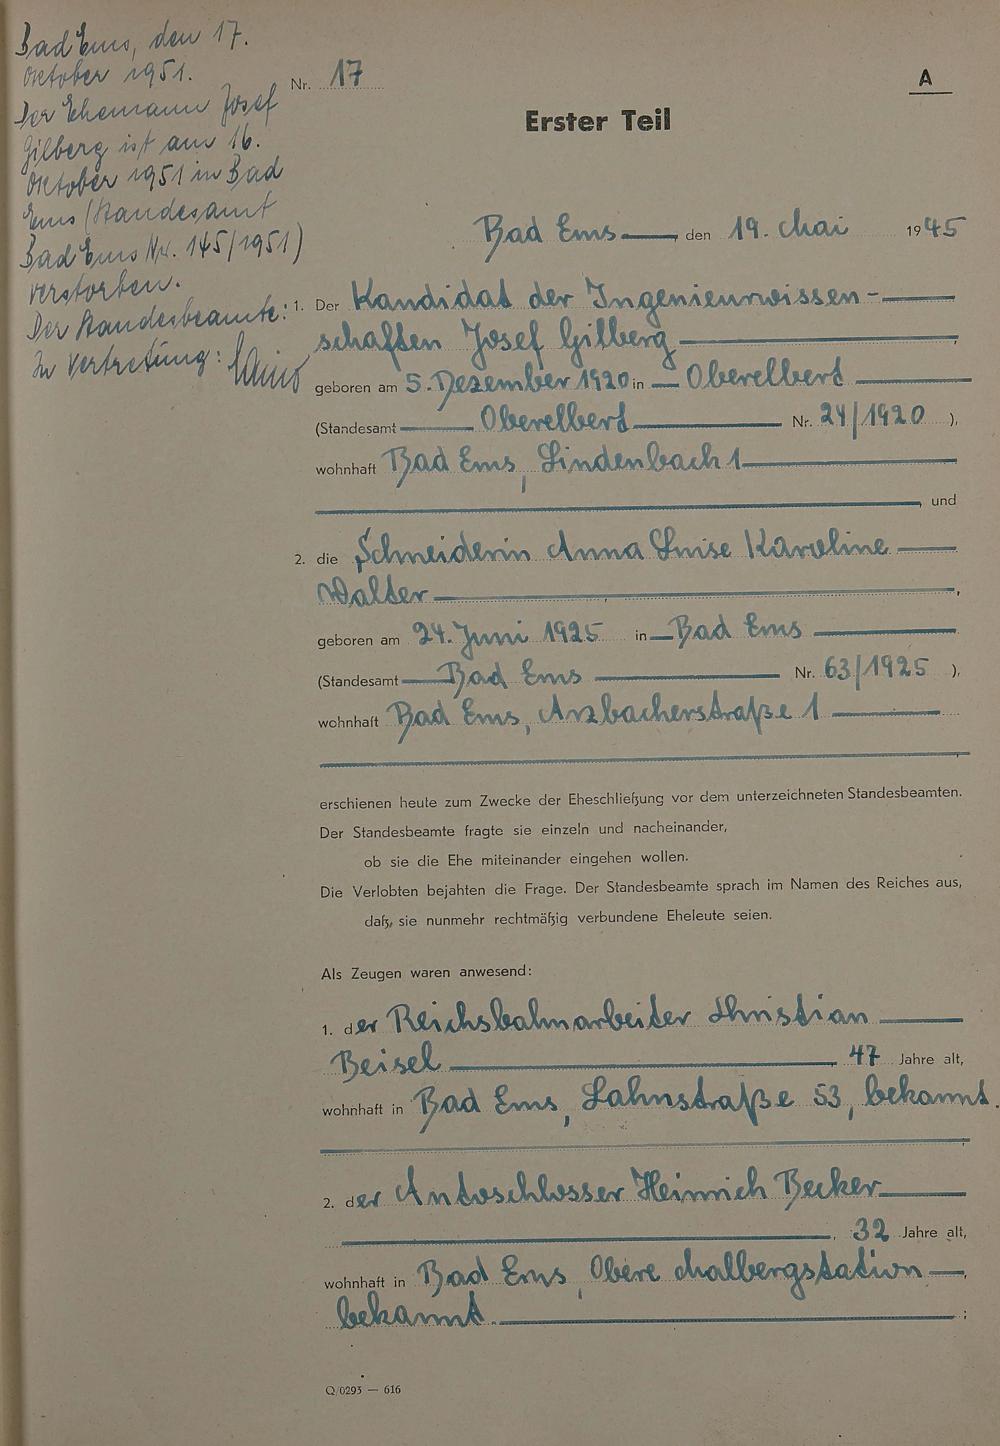 Bad Ems, den 17.
Oktober 1951.
Der Ehemann Josef
Gilberg ist am 16.
Oktober 1951 in Bad
Ems (Standesamt
Bad Ems Nr. 145/1951)
verstorben.
Der Standesbeamte:
In Vertretung:
Nr. 17
A
Erster Teil
Bad Ems, den 19. Mai 1945
1. Der Kandidat der Ingenieurwissen-
schaften Josef Gilberg,
geboren am 5. Dezember 1920 in Oberelbert
(Standesamt Oberelbert Nr. 24/1920 ),
wohnhaft Bad Ems, Lindenbach 1
, und
2. die Schneiderin Anna Luise Karoline
Walter,
geboren am 24. Juni 1925 in Bad Ems
(Standesamt Bad Ems Nr. 63/1925 ),
wohnhaft Bad Ems, Arzbacherstraße 1
,
erschienen heute zum Zwecke der Eheschließung vor dem unterzeichneten Standesbeamten.
Der Standesbeamte fragte sie einzeln und nacheinander,
ob sie die Ehe miteinander eingehen wollen.
Die Verlobten bejahten die Frage. Der Standesbeamte sprach im Namen des Reiches aus,
daß sie nunmehr rechtmäßig verbundene Eheleute seien.
Als Zeugen waren anwesend:
1. der Reichsbahnarbeiter Christian
Beisel, 47 Jahre alt,
wohnhaft in Bad Ems, Lahnstraße 53, bekannt.
2. der Autoschlosser Heinrich Becker
, 32 Jahre alt,
wohnhaft in Bad Ems, Obere Malbergstation,
bekannt. ;
Q/0293 — 616